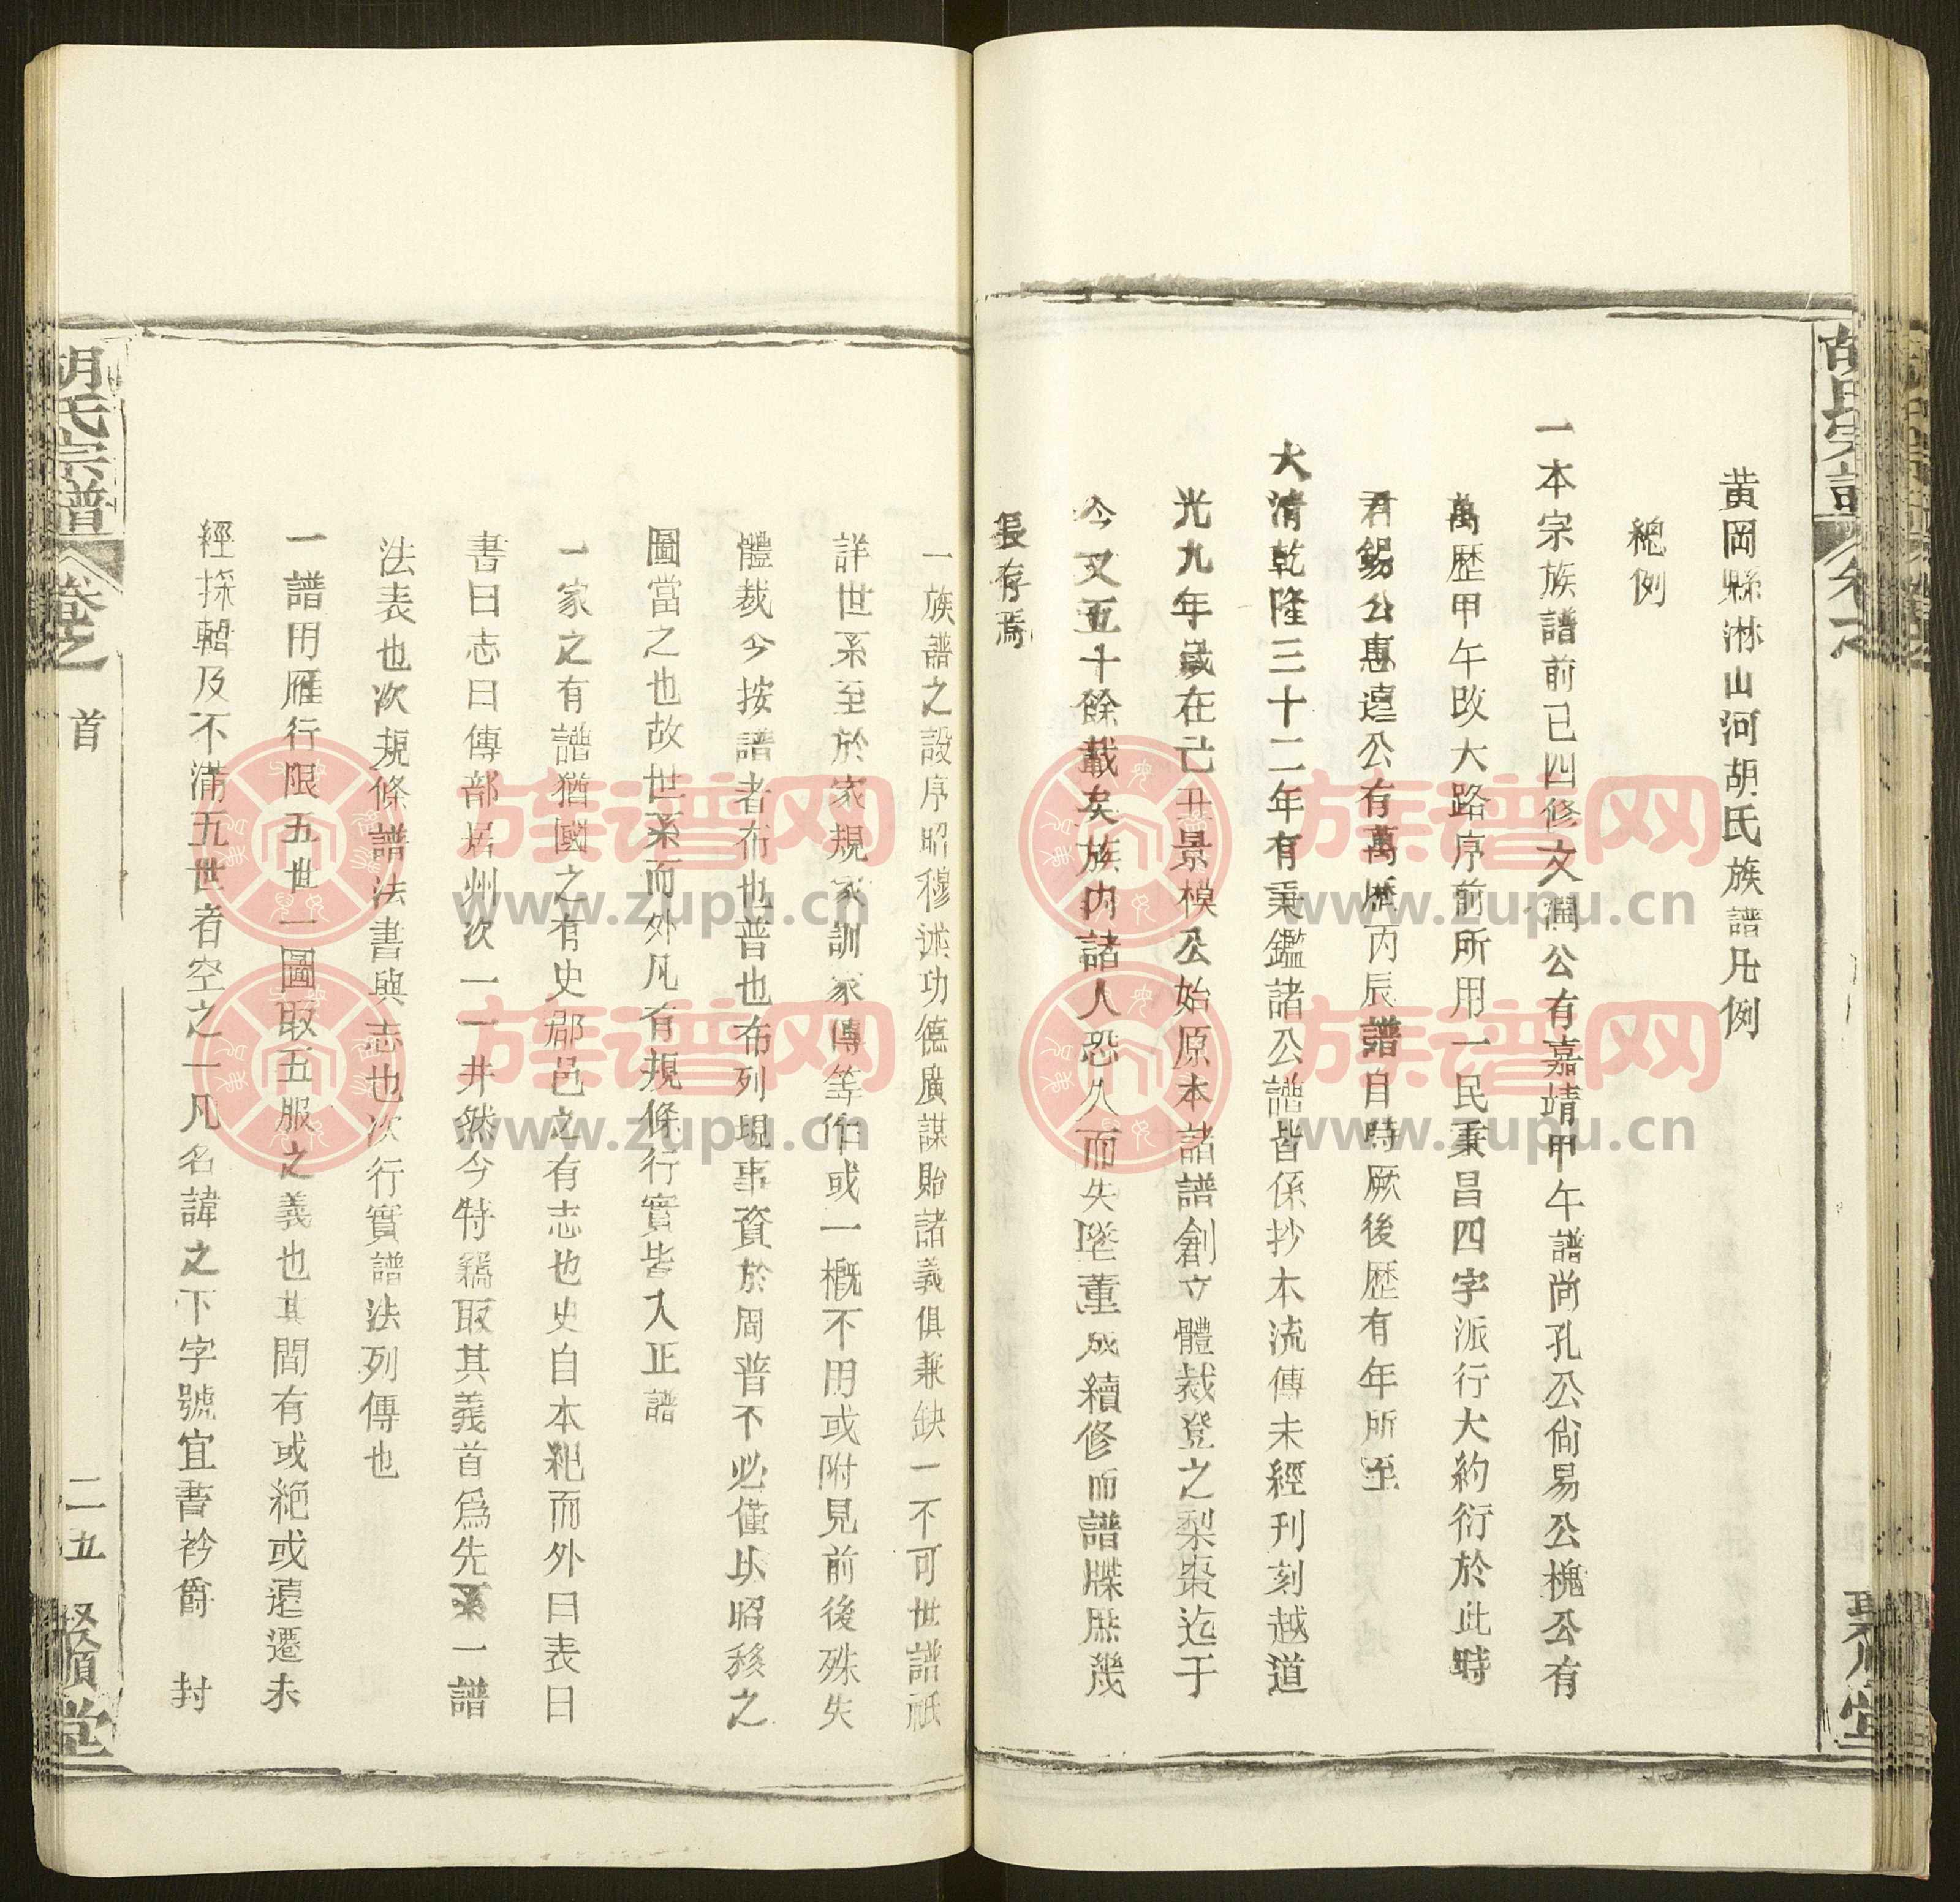 黄岡縣淋山河胡氏族譜凡例
總例
一本宗族譜前已四修文潤公有嘉靖甲午譜尚孔公尙易公槐公有
萬歷甲午改大路序前所用一民秉昌四字派行大約衍於此時
君錫公惠遠公有萬歷丙辰譜自時厥後歷有年所至
大清乾隆三十二年有秉鑑諸公譜皆係抄本流傳未經刊刻越道
光九年歲在己丑景模公始原本諸譜創立體裁登之梨棗迄于
今又五十餘載矣族內諸人恐久而失墜董成續修而譜牒庶幾
長存焉
一族譜之設序昭穆述功德廣謀貽諸義俱兼缺一不可世譜祇
詳世系至於家規家訓家傳等作或一槪不用或附見前後殊失
體裁今按譜者布也普也布列現事資於周普不必僅以昭移之
圖當之也故世系而外凡有規條行實皆入正譜
一家之有譜猶國之有史郡邑之有志也史自本紀而外曰表曰
書曰志曰傳部居州次一一井然今特竊取其義首爲先系一譜
法表也次規條譜法書與志也次行實譜法列傳也
一譜用雁行限五世一圖取五服之義也其間有或絕或遠遷未
經採輯及不滿五世者空之一凡名諱之下字號宜書衿爵 封
胡氏宗譜 卷之 首 二五 聚順堂
族谱网
www.zupu.cn
族谱网
www.zupu.cn
族谱网
www.zupu.cn
族谱网
www.zupu.cn